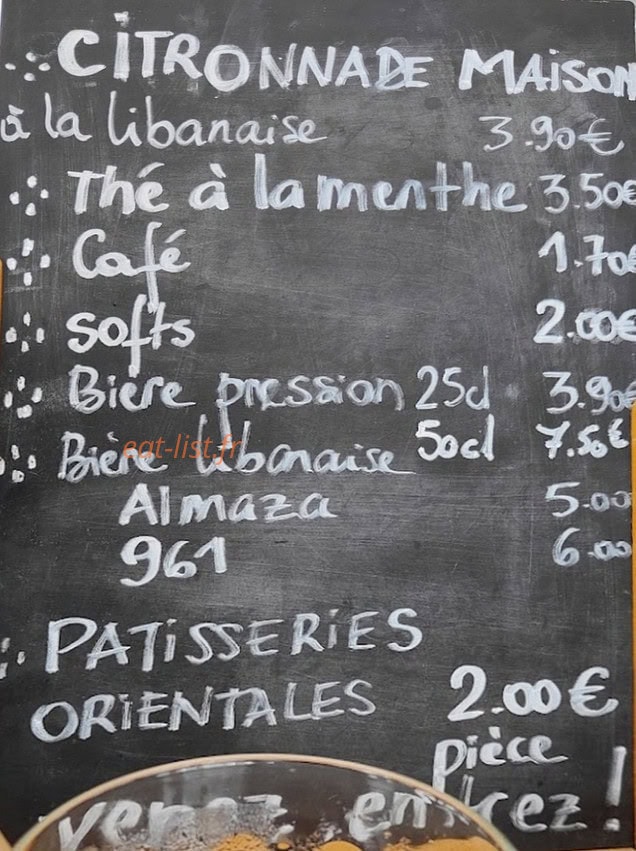 CITRONNADE MAISON
à la libanaise 3.90€
Thé à la menthe 3.50€
Café 1.70€
softs 2.00€
Bière pression 25cl 3.90€
50cl 7.50€
Bière libanaise
eat-list.fr
Almaza 5.00
961 6.00
PATISSERIES
ORIENTALES 2.00€
pièce
venez entrez!